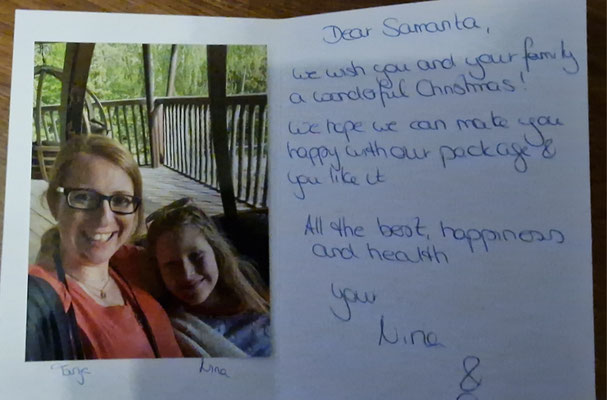 Dear Samanta,
we wish you and your family
a wonderful Christmas!
We hope we can make you
happy with our package &
you like it
All the best, happiness
and health
your
Nina
&
Tanja Nina